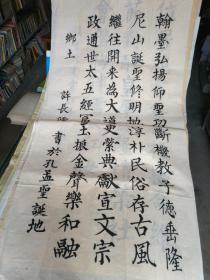 翰墨弘揚仰聖功斷機教子德垂隆
尼山誕聖修明地淳朴民俗存古風
繼往開來為大道更縈典獻宣文宗
政通世太五經冪玉振金聲樂和融
鄉土
許長 書於孔孟聖誕地